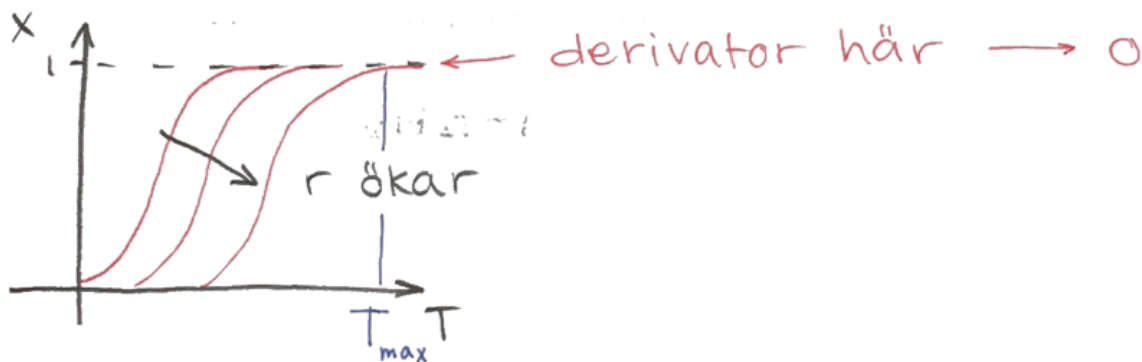 X
1
derivator här → 0
r ökar
T_max T